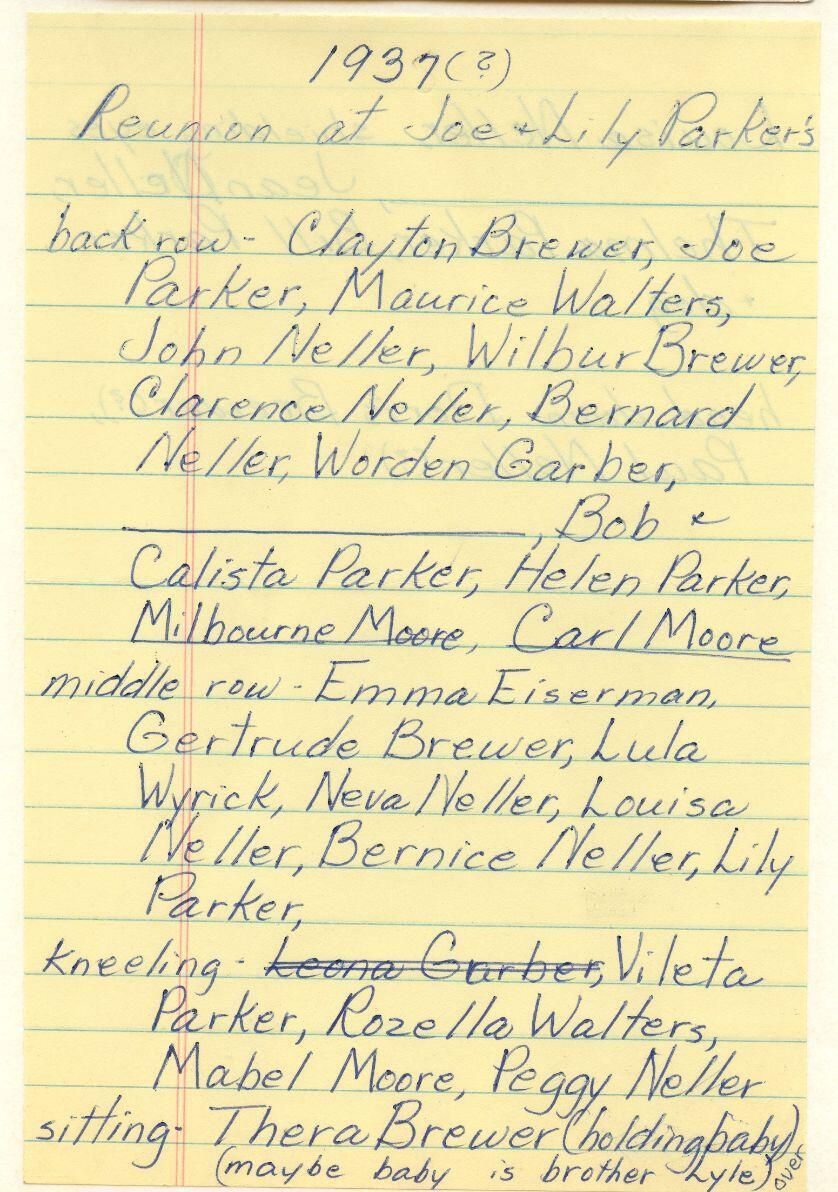 1937(?)
Reunion at Joe + Lily Parker's
back row - Clayton Brewer, Joe
Parker, Maurice Walters,
John Neller, Wilbur Brewer,
Clarence Neller, Bernard
Neller, Worden Garber,
____________, Bob +
Calista Parker, Helen Parker,
Milbourne Moore, Carl Moore
middle row - Emma Eiserman,
Gertrude Brewer, Lula
Wyrick, Neva Neller, Louisa
Neller, Bernice Neller, Lily
Parker,
kneeling - Leona Garber, Vileta
Parker, Rozella Walters,
Mabel Moore, Peggy Neller
sitting - Thera Brewer (holding baby),
(maybe baby is brother Lyle)
over